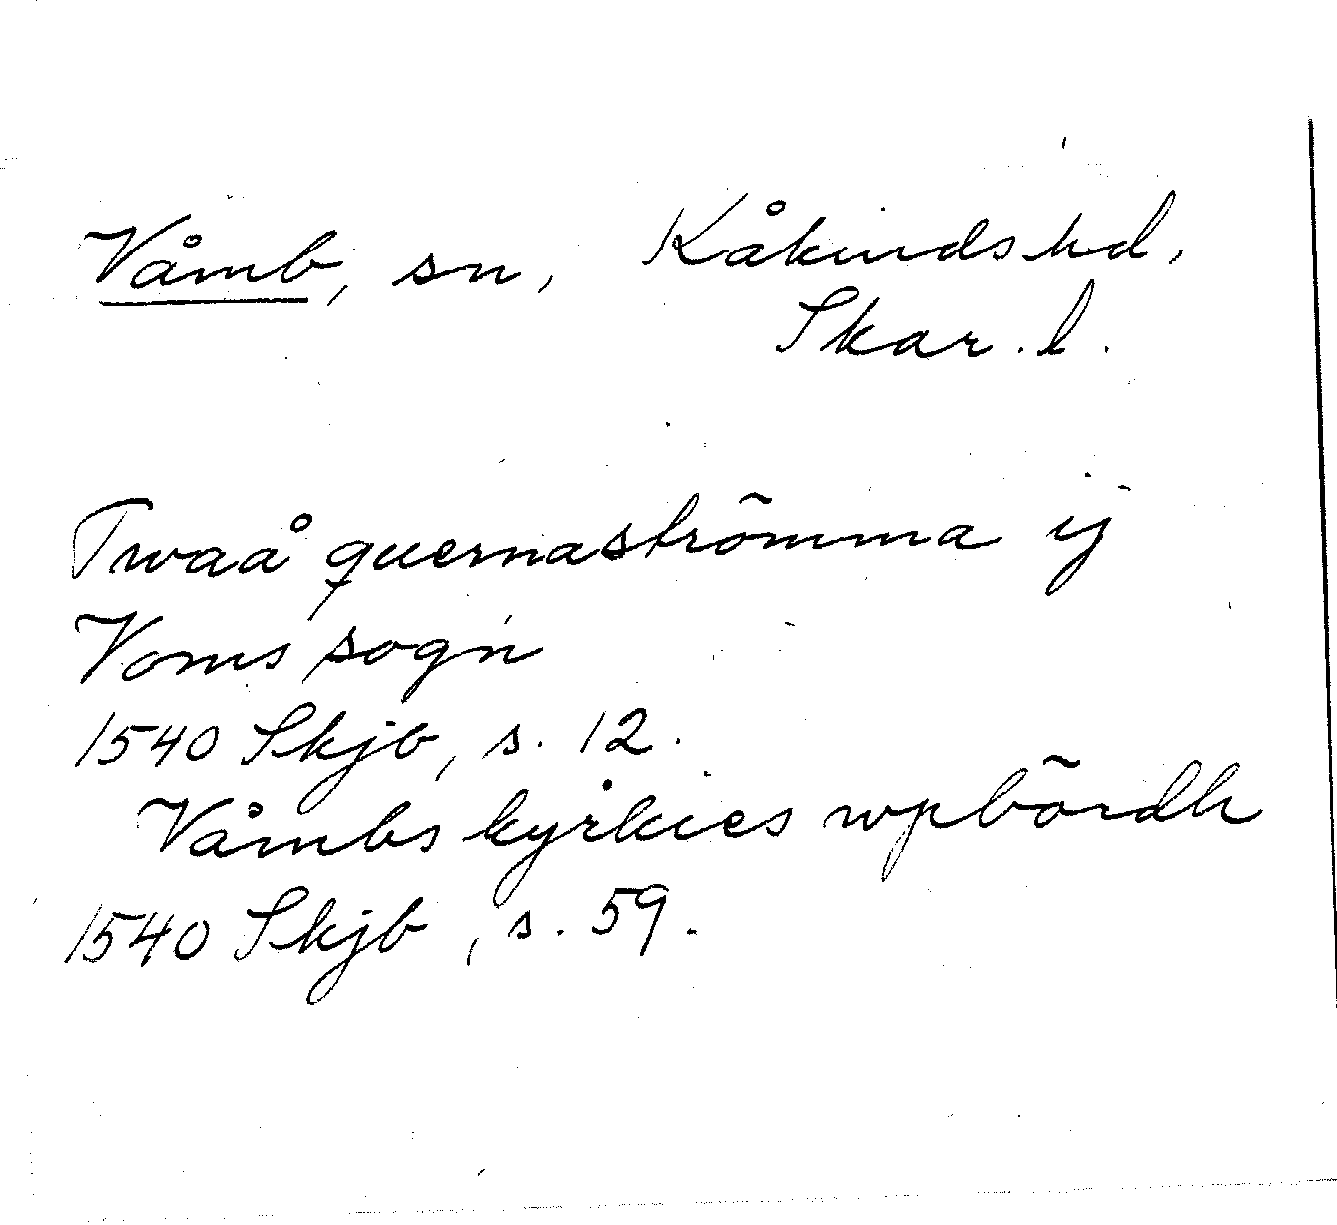 Våmb, sn, Kåkinds hd,
Skar. l.
Twaå quernaströmma ij
Voms sogn
1540 Skjb, s. 12.
Våmbs kyrkies wpbördh
1540 Skjb, s. 59.